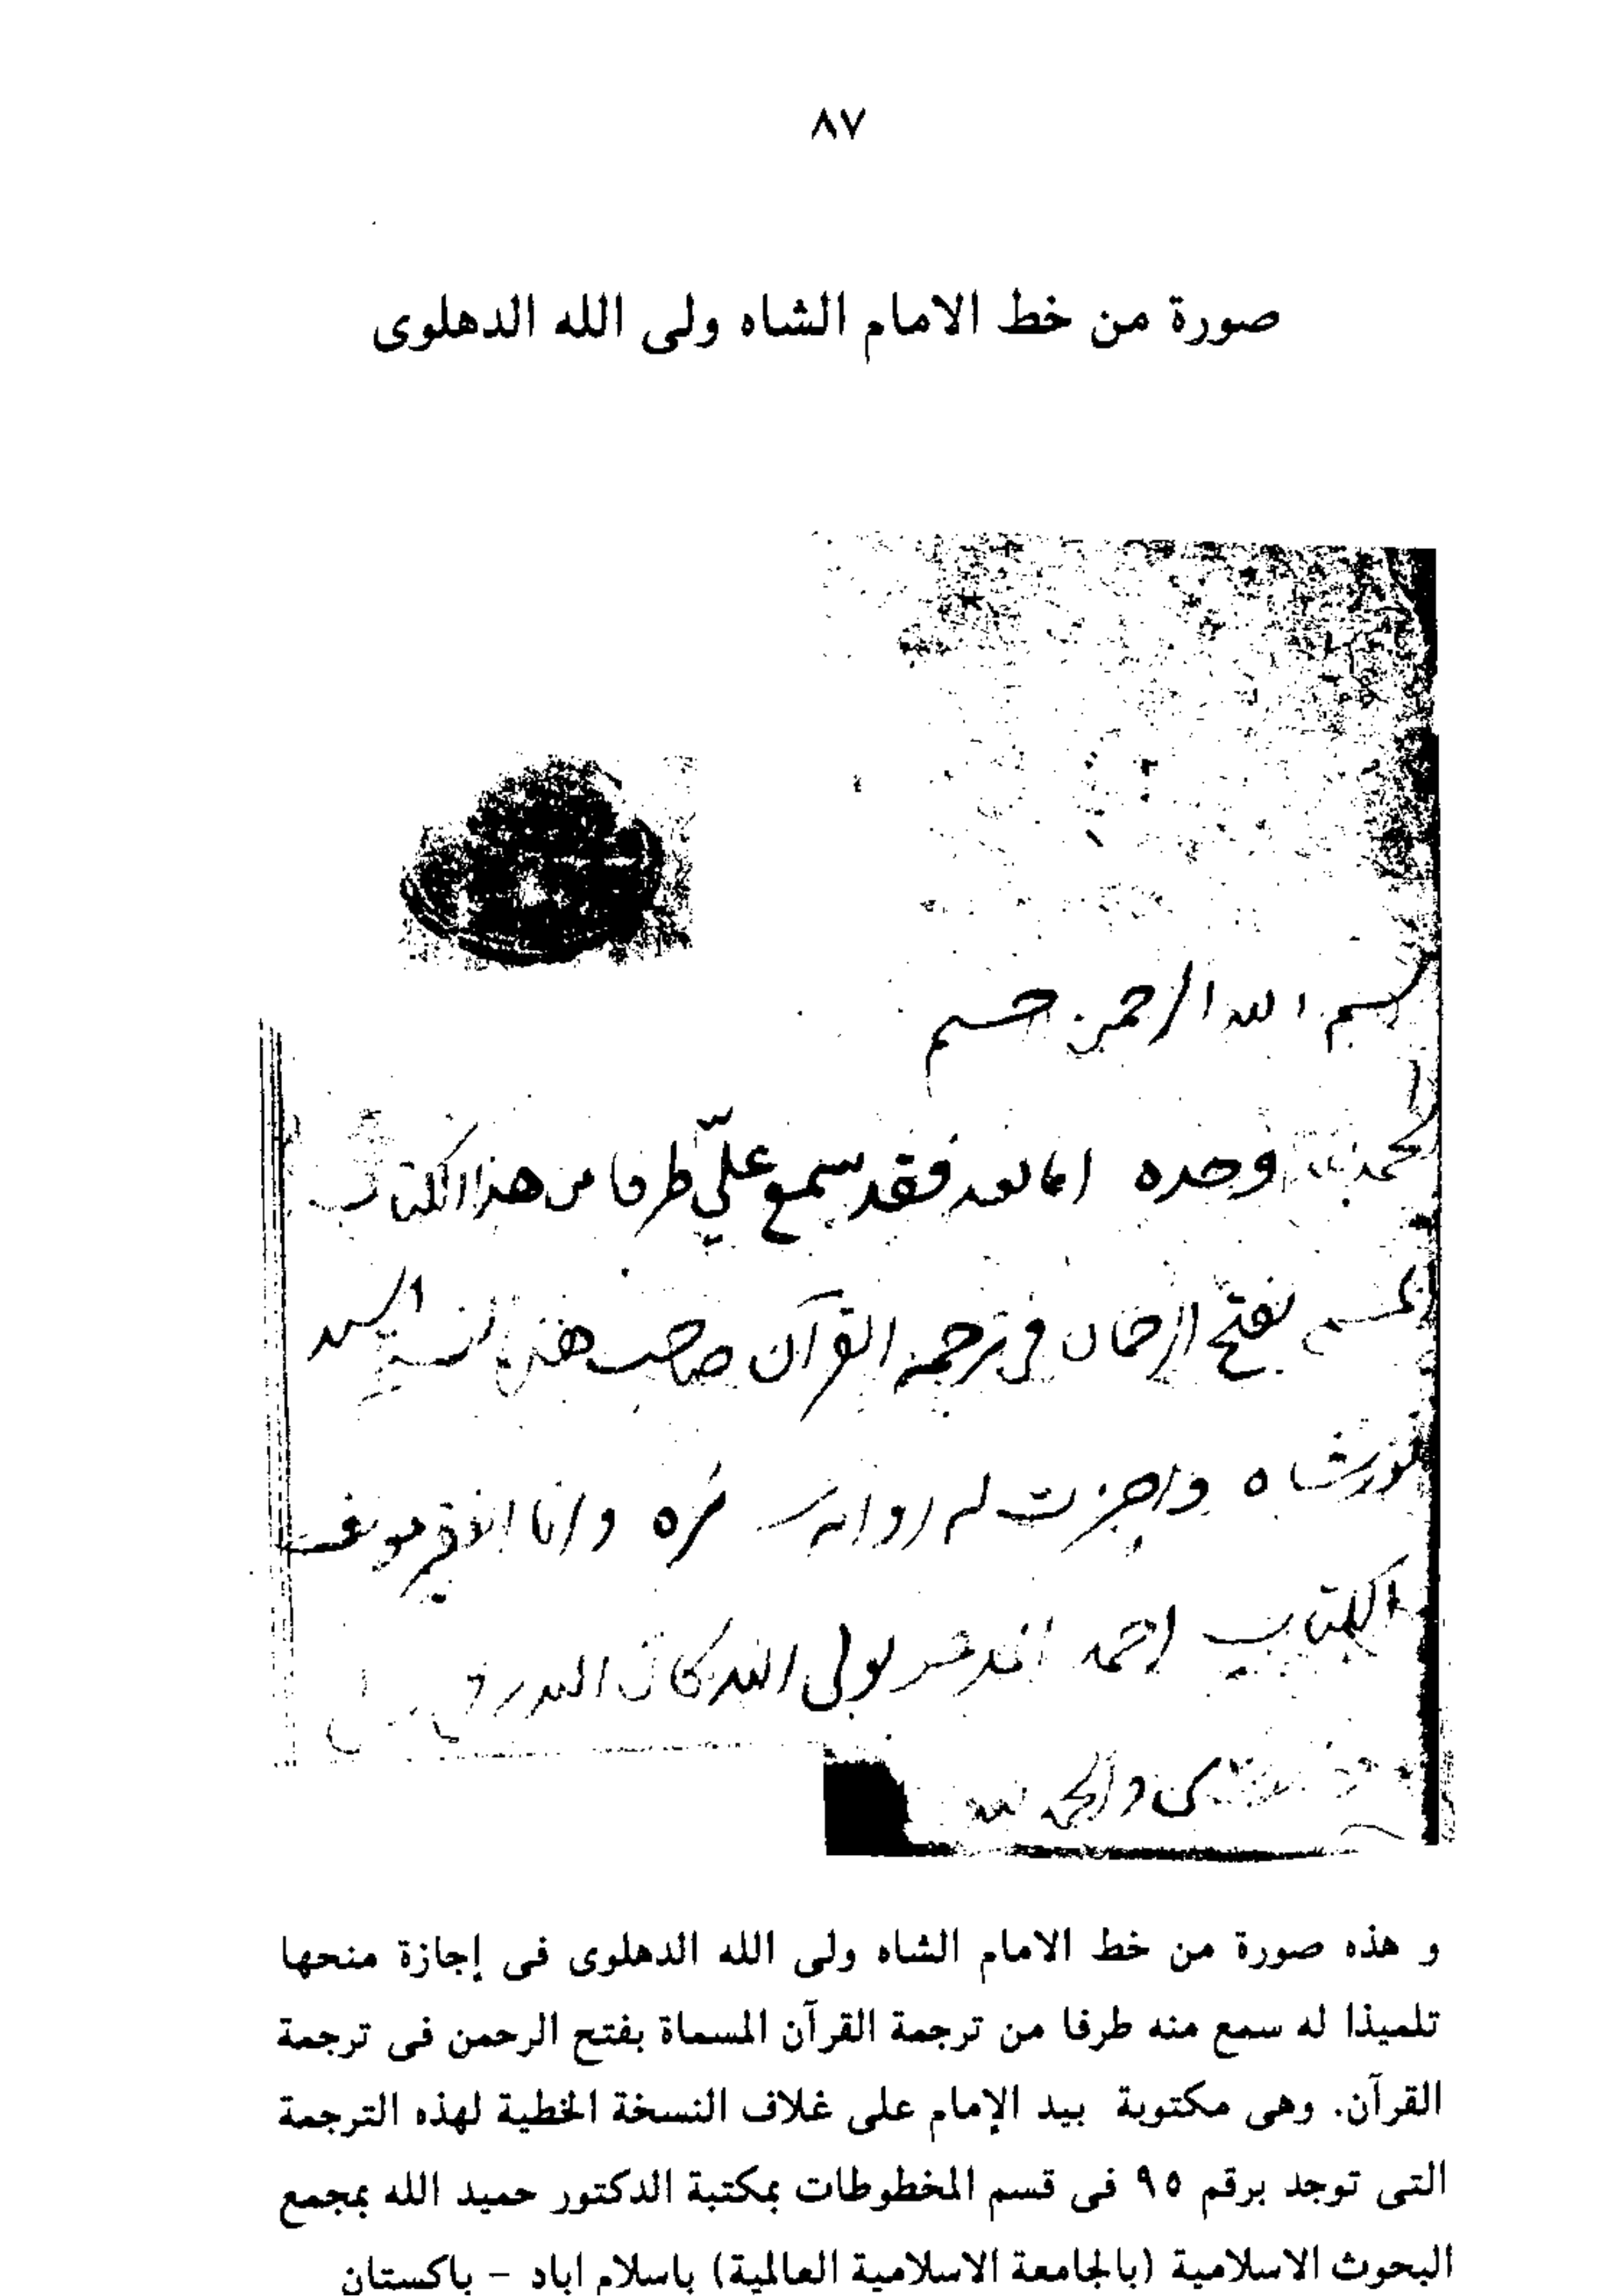 ٨٧
صورة من خط الامام الشاه ولى الله الدهلوى
بسم الله الرحمن حسم
الحمد لله وحده اما بعد فقد سمع علىّ طرفا من هذا الكتاب
بفتح الرحمان فى ترجمة القرآن صاحب هذه النسخة السيد
نورشاه واجزت له روايه وانا الفقير مولف
الكتاب احمد المدعو بولى الله كان الله
والحمد لله
و هذه صورة من خط الامام الشاه ولى الله الدهلوى فى إجازة منحها
تلميذا له سمع منه طرفا من ترجمة القرآن المسماة بفتح الرحمن فى ترجمة
القرآن. وهى مكتوبة بيد الإمام على غلاف النسخة الخطية لهذه الترجمة
التى توجد برقم ٩٥ فى قسم المخطوطات بمكتبة الدكتور حميد الله بمجمع
البحوث الاسلامية (بالجامعة الاسلامية العالمية) باسلام اباد – باكستان